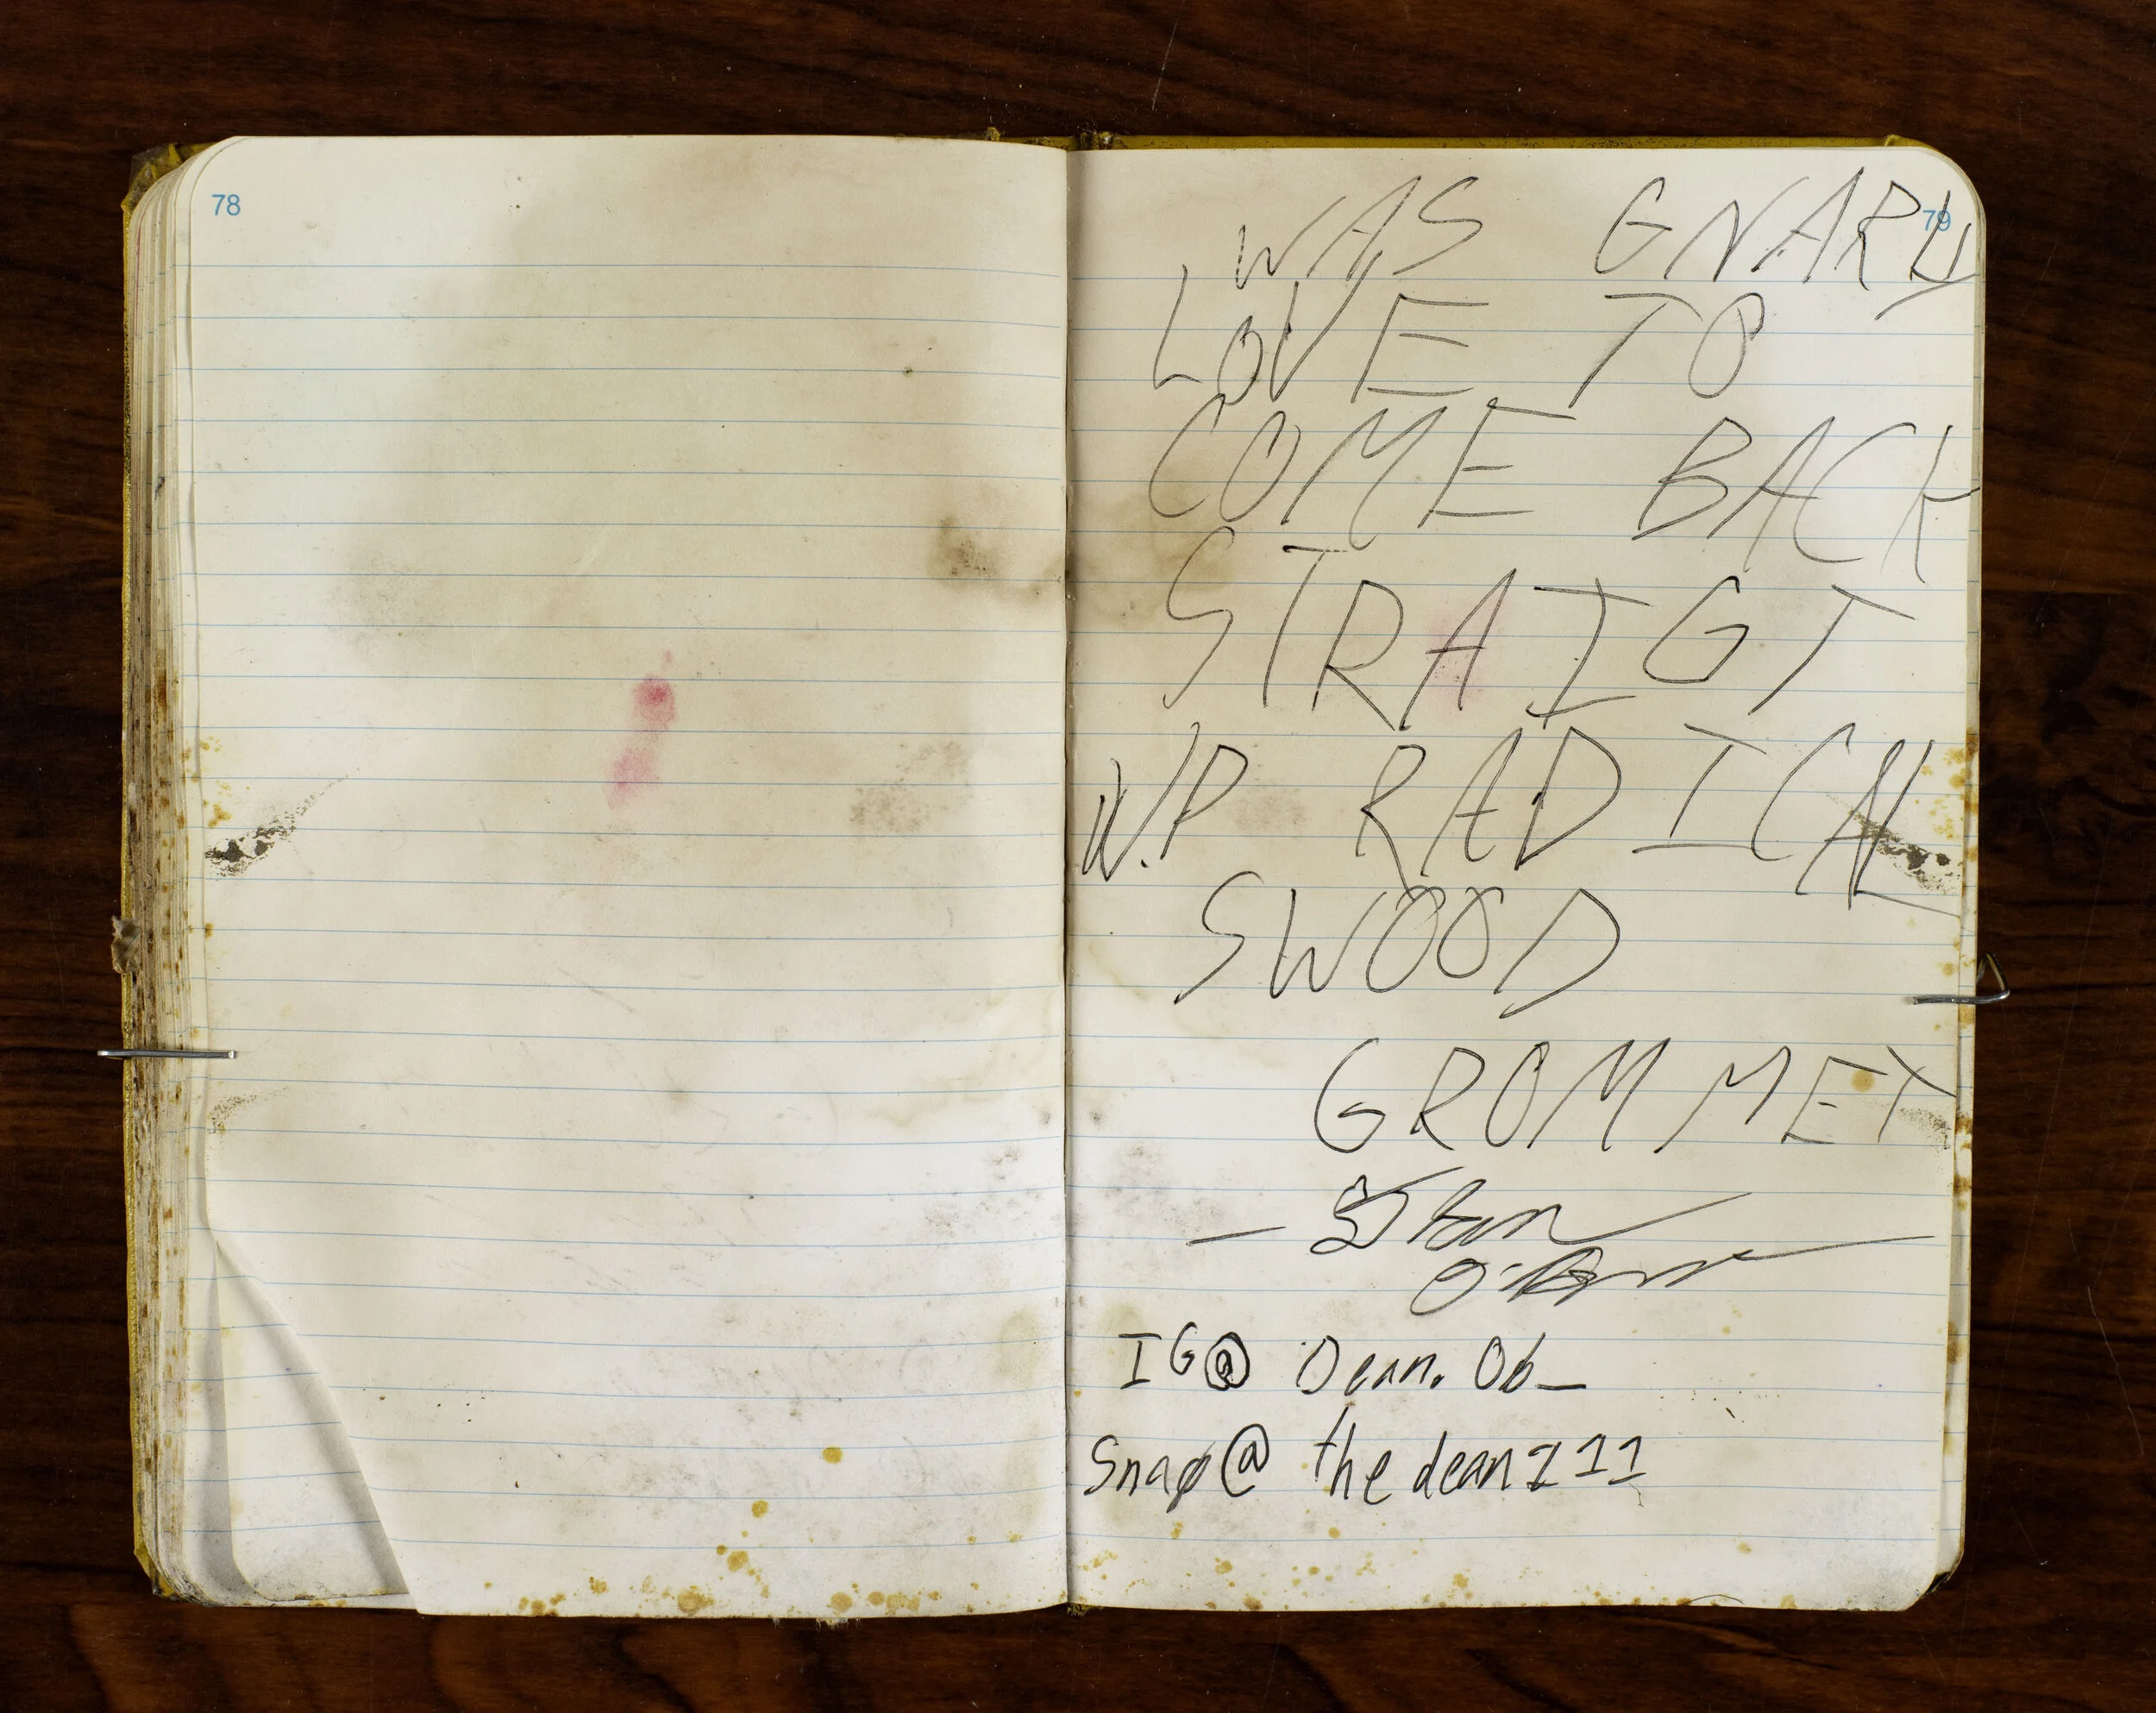 78
79
WAS GNARLY
LOVE TO
COME BACK
STRAIGT
RADICAL
SWOOD
GROMMET
IG@ Dean.Ob_
Snap@ thedean111